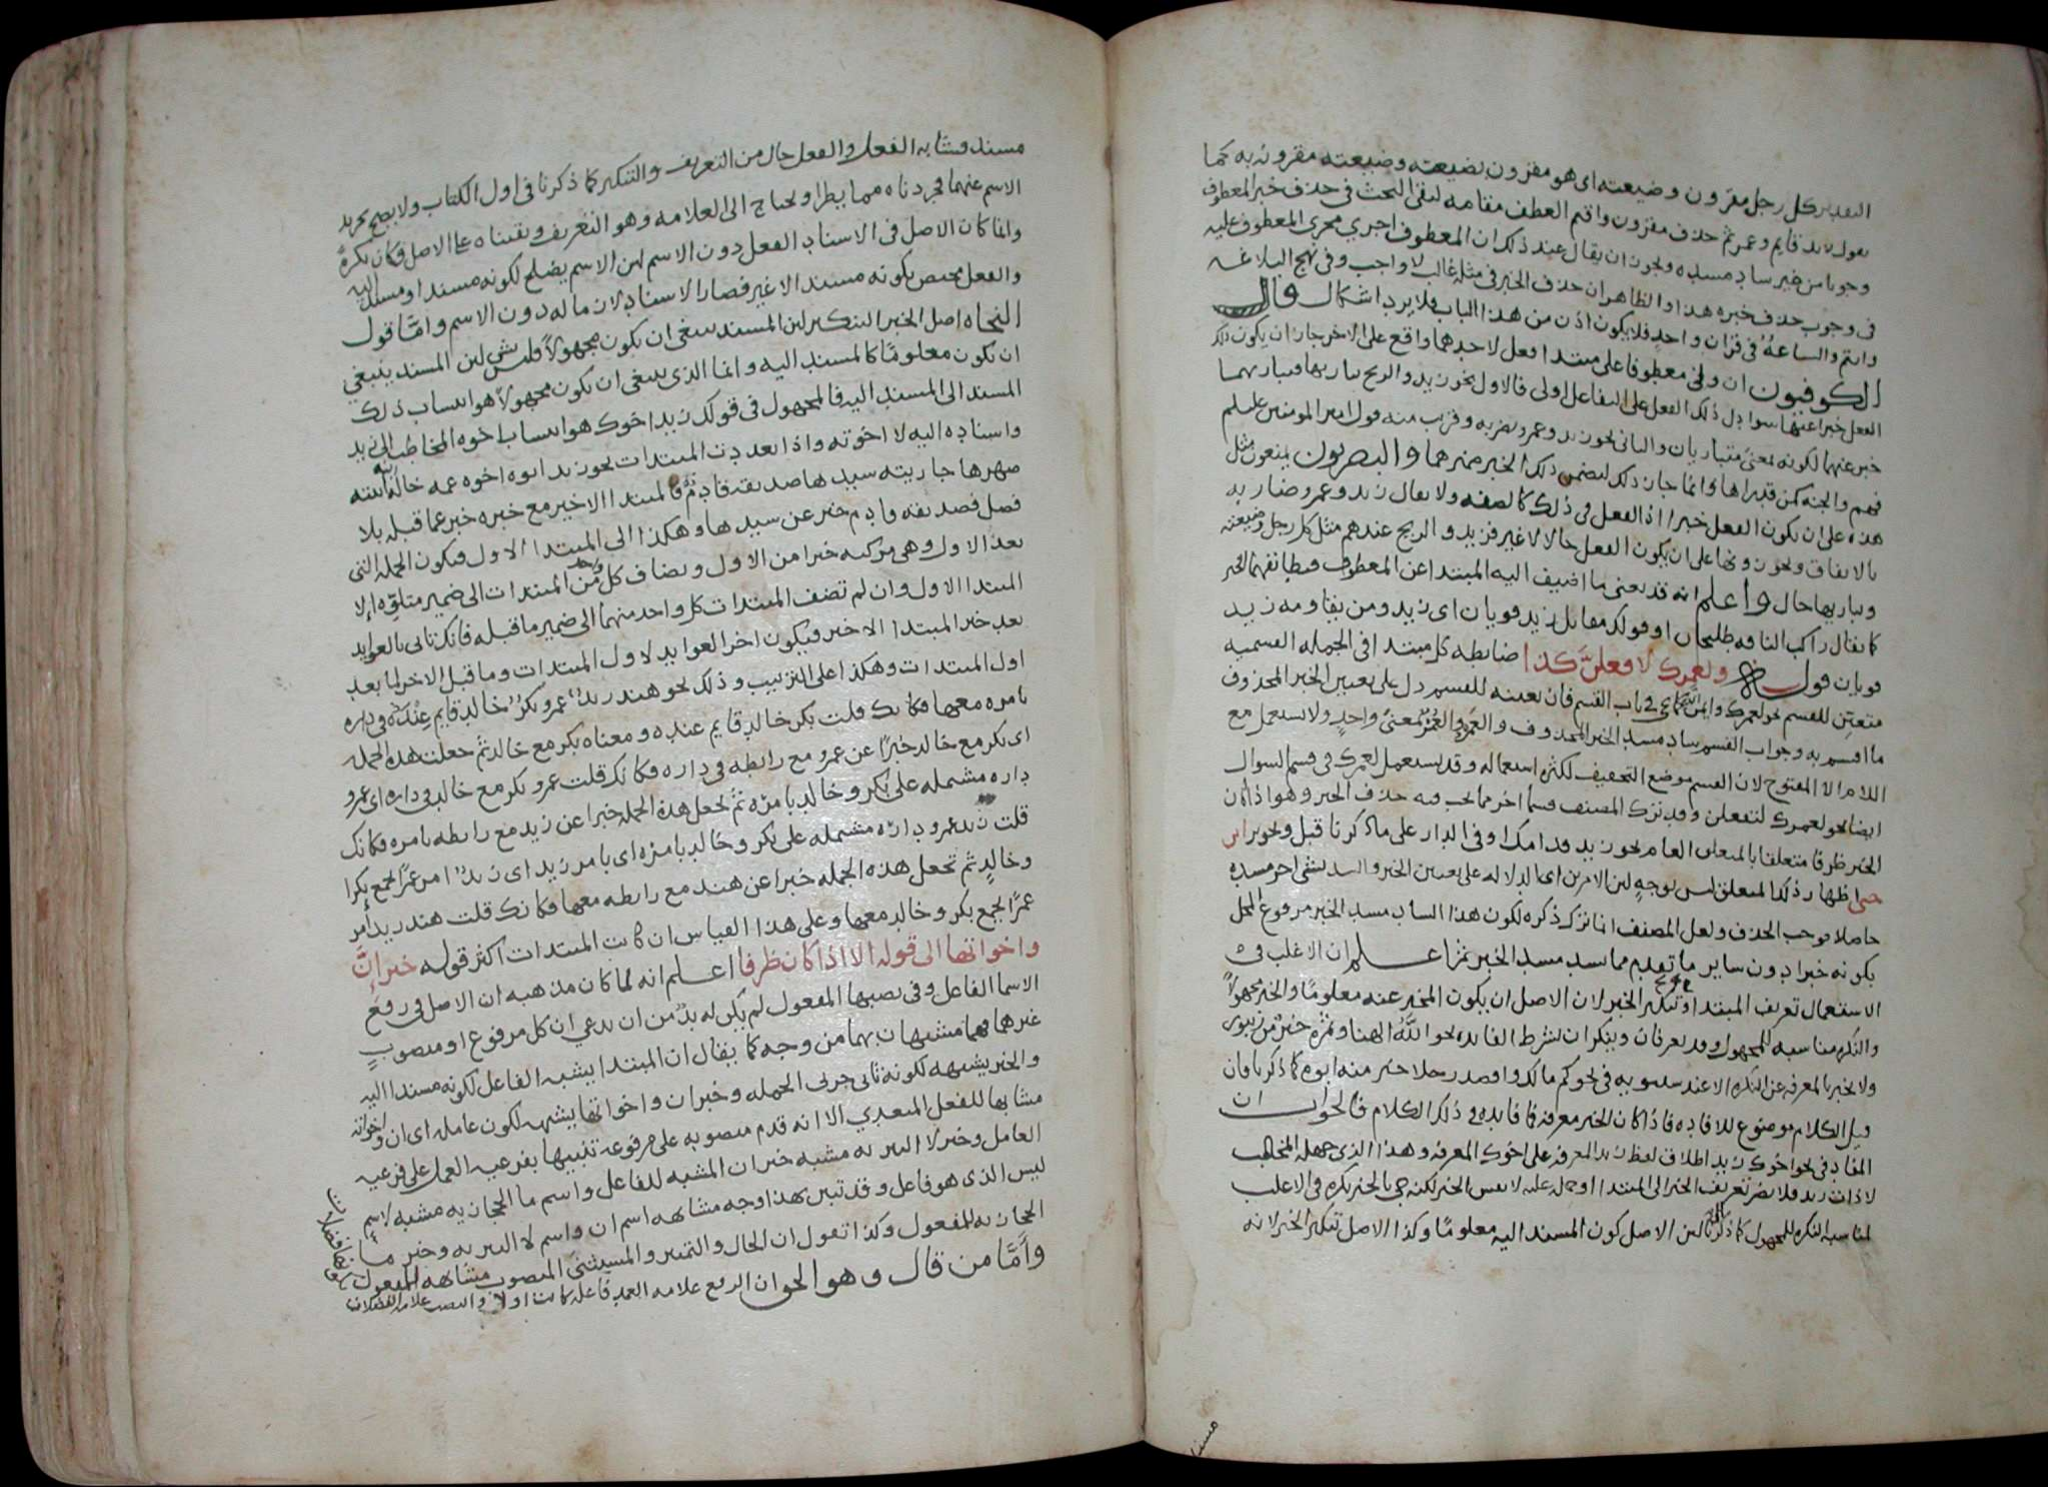 التقدير كل رجل مقرون وضيعته اى هو مقرون بضيعته وضيعته مقرونه به كما
تقول زيد قايم وعمرو ثم حذف مقرون واقيم العطف مقامه لبقى البحث فى حذف خبر المعطوف
وجوبا من غير ساد مسده ويجوز ان يقال عند ذلك ان المعطوف اجرى مجرى المعطوف عليه
فى وجوب حذف خبره هذا والظاهر ان حذف الخبر فى مثله غالب لا واجب وفى نهج البلاغه
وانتم والساعة فى قرن واحد فلا يكون اذن من هذا الباب فلا يرد اشكال قال
الكوفيون ان ولى معطوفا على مبتدا فعل لاحدهما واقع على الاخر جاز ان يكون ذلك
الفعل خبرا عنهما سوا دل ذلك الفعل على التفاعل اولى فالاول نحو زيد والريح يباريها فيباريها
خبر عنهما لكونه بمعنى متباريان والثانى نحو زيد وعمرو يضربه وقريب منه قول امير المومنين عليلم
فهم والجنه كمن قد راها وانما جاز ذلك لتضمن ذلك الخبر ضميرهما والبصريون يمنعون مثل
هذه على ان يكون الفعل خبرا اذ الفعل فى ذلك كالصفه ولا يقال زيد وعمرو ضاربه
بالاتفاق ويجوزونها على ان يكون الفعل حالا لا غير فزيد والريح عندهم مثل كل رجل وضيعته
ويباريها حال واعلم انه قد يعنى ما اضيف اليه المبتدا عن المعطوف فيطابقهما الخبر
كما يقال راكب الناقه طليحان او قولك مقابل زيد قويان اى زيد ومن يقاومه زيد
قويان قوله ولعمرك لافعلن كذا ضابطه كل مبتدا فى الجمله القسميه
متعين للقسم نحو لعمرك وايمن الله كما يجى فى باب القسم فان تعينه للقسم دل على تعيين الخبر المحذوف
ما اقسم به وجواب القسم ساد مسد الخبر المحذوف والعَمر والعُمر بمعنى واحد ولا يستعمل مع
اللام الا المفتوح لان القسم موضع التخفيف لكثره استعماله وقد يستعمل لعمرك فى قسم السوال
ايضا نحو لعمرك لتفعلن وقد ترك المصنف قسما اخر مما يجب فيه حذف الخبر وهو اذا كان
الخبر ظرفا متعلقا بالمتعلق العام نحو زيد قدامك او فى الدار على ما ذكرنا قبل ويجوز ابن
جنى اظهار ذلك المتعلق ليس بوجه لان الامرين اى الدلاله على تعيين الخبر والسد بشى اخر مسده
حاصلا فوجب الحذف ولعل المصنف انما ترك ذكره لكون هذا الساد مسد الخبر مرفوع المحل
بكونه خبرا دون ساير ما تقدم مما سد مسد الخبر ثم اعلم ان الاغلب فى
الاستعمال تعريف المبتدا وتنكير الخبر لان الاصل ان يكون المخبر عنه معلوما والخبر مجهولا
والنكره مناسبه للمجهول وقد يعرفان وينكران بشرط الفايده نحو الله الهنا وتمرة خير من زنبور
ولا يخبر بالمعرفه عن النكره الا عند سيبويه فى نحو كم مالك واقصد رجلا خير منه ابوه كما ذكرنا فان
قيل الكلام موضوع للافاده فاذا كان الخبر معرفه فما فايده ذلك الكلام فالجواب ان
المفاد فى نحو اخوك زيد اطلاق لفظ زيد المعرفه على اخوك المعرفه وهذا الذى جهله المخاطب
لا ذات زيد فلا يضر تعريف الخبر الى المبتدا او حمله عليه لا نفس الخبر لكنه جى بالخبر نكره فى الاغلب
لمناسبه النكره للمجهول كما ذكرنا لان الاصل كون المسند اليه معلوما وكذا الاصل تنكير الخبر لانه
مسند
مسند فشابه الفعل والفعل خال من التعريف والتنكير كما ذكرنا فى اول الكتاب ولا يصح تجريد
الاسم عنهما فجردناه مما يطرا ويحتاج الى العلامه وهو التعريف وبقيناه على الاصل فكان نكرة
وانما كان الاصل فى الاسناد الفعل دون الاسم لان الاسم يصلح لكونه مسندا ومسند اليه
والفعل مختص بكونه مسندا لا غير فصار الاسناد لازما له دون الاسم واما قول
النحاه اصل الخبر التنكير لان المسند ينبغى ان يكون مجهولا فليس بشى لان المسند ينبغى
ان يكون معلوما كالمسند اليه وانما الذى ينبغى ان يكون مجهولا هو انتساب ذلك
المسند الى المسند اليه فالمجهول فى قولك زيد اخوك هو انتساب اخوه المخاطب الى زيد
واسناده اليه لا اخوته واذا تعددت المبتدات نحو زيد ابوه اخوه عمه خاله ابنه ابنته
صهرها جاريته سيدها صديقه قادم فالمبتدا الاخير مع خبره خبر عما قبله بلا
فصل فصديقه قادم خبر عن سيدها وهكذا الى المبتدا الاول فتكون الجمله التى
بعد الاول وهى مركبه خبرا من الاول ويضاف كل واحد من المبتدات الى ضمير متلوه الا
المبتدا الاول وان لم تضف المبتدات كل واحد منهما الى ضمير ما قبله فانك تاتى بالعوايد
بعد خبر المبتدا الاخير فيكون اخر العوايد لاول المبتدات وما قبل الاخر لما بعد
اول المبتدات وهكذا على الترتيب وذلك نحو هند زيد عمرو بكر خالد قايم عنده فى داره
بامره معها فكانك قلت بكر خالد قايم عنده ومعناه بكر مع خالد ثم جعلت هذه الجمله
اى بكر مع خالد خبرا عن عمرو مع رابطه فى داره فكانك قلت عمرو بكر مع خالد فى داره اى عمرو
داره مشتمله على بكر وخالد بامره ثم تجعل هذه الجمله خبرا عن زيد مع رابطه بامره فكانك
قلت زيد عمرو داره مشتمله على بكر وخالد بامره اى بامر زيد اى زيد امر عمرا بجمع بكرا
وخالد ثم تجعل هذه الجمله خبرا عن هند مع رابطه معها فكانك قلت هند زيد امر
عمرا بجمع بكر وخالد معها وعلى هذا القياس ان كانت المبتدات اكثر قوله خبر ان
واخواتها الى قوله الا اذا كان ظرفا اعلم انه لما كان مذهبه ان الاصل فى رفع
الاسما الفاعل وفى نصبها المفعول لم يكن له بد من ان يدعى ان كل مرفوع او منصوب
غيرهما فهما مشبهان بهما من وجه كما يقال ان المبتدا يشبه الفاعل لكونه مسندا اليه
والخبر يشبهه لكونه ثانى جزئى الجمله وخبر ان واخواتها يشبهه لكون عامله اى ان واخواته
مشابها للفعل المتعدى الا انه قدم منصوبه على مرفوعه تنبيها بفرعيه العمل على فرعيه
العامل وخبر لا التبريه مشبه خبر ان المشبه للفاعل واسم ما الحجازيه مشبه لاسم
ليس الذى هو فاعل وقد تبين بهذا وجه مشابهه اسم ان واسم لا التبريه وخبر ما
الحجازيه للمفعول وكذا تقول ان الحال والتمييز والمستثنى المنصوب مشابهه للمفعول
واما من قال وهو الحق ان الرفع علامه العمد فاعله كانت او لا والنصب علامه الفضلات